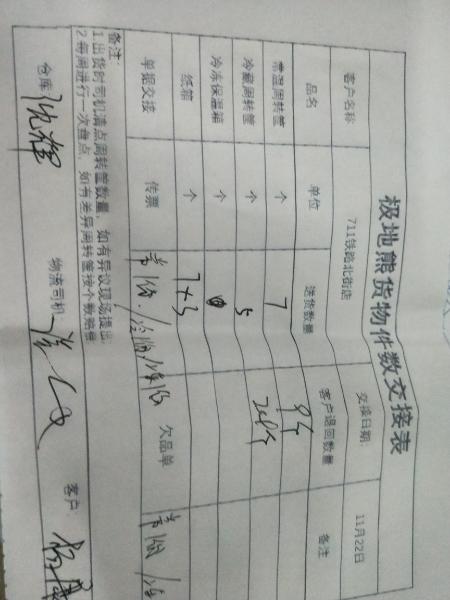 极地熊货物件数交接表
客户名称 711铁路北街店 交接日期: 11月22日
品名 单位 送货数量 客户退回数量 备注
常温周转筐 个 7 9个
冷藏周转筐 个 5
冷冻保温箱 个
纸箱 个 7+3
单据交接 传票 欠品单
备注:
1.出货时司机清点周转筐数量,如有异议现场提出;
2.每周进行一次盘点,如有差异周转筐按个数赔偿
仓库: 物流司机: 客户: